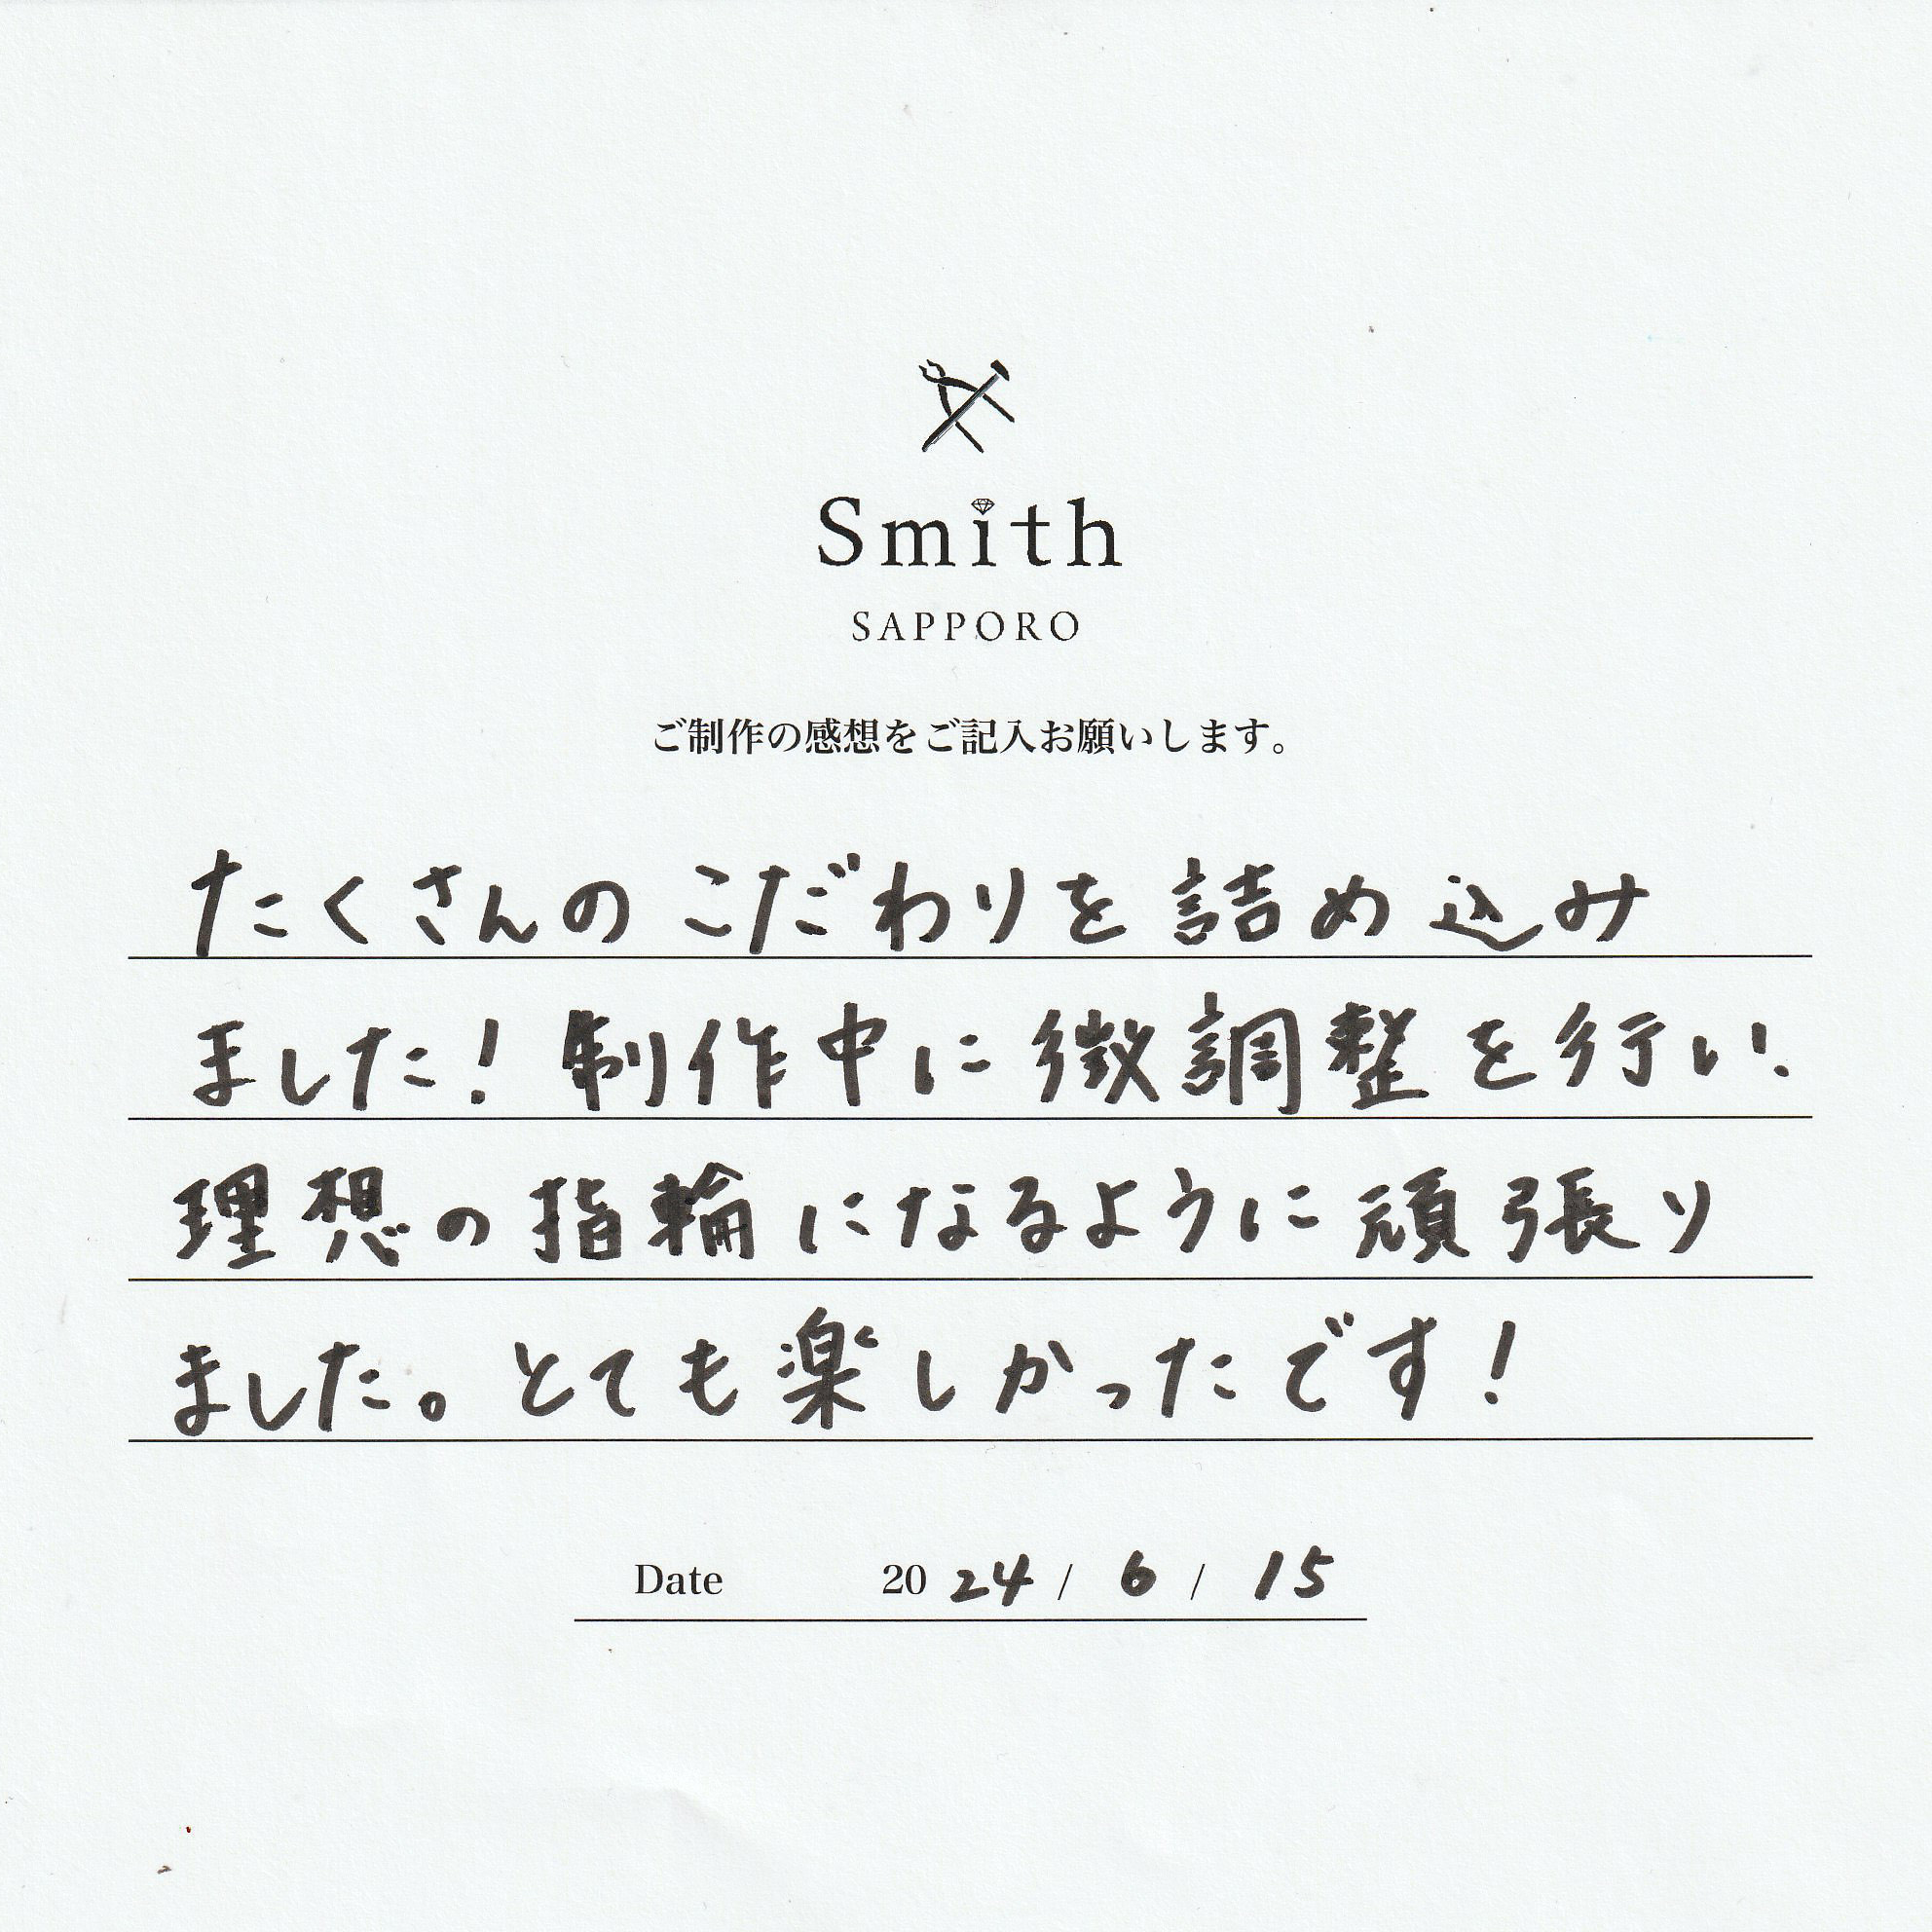 Smith
SAPPORO
ご制作の感想をご記入お願いします。
たくさんの こだわりを 詰め込み
ました! 制作中に 微調整を行い、
理想の指輪になるように頑張り
ました。とても楽しかったです!
Date 2024 / 6 / 15